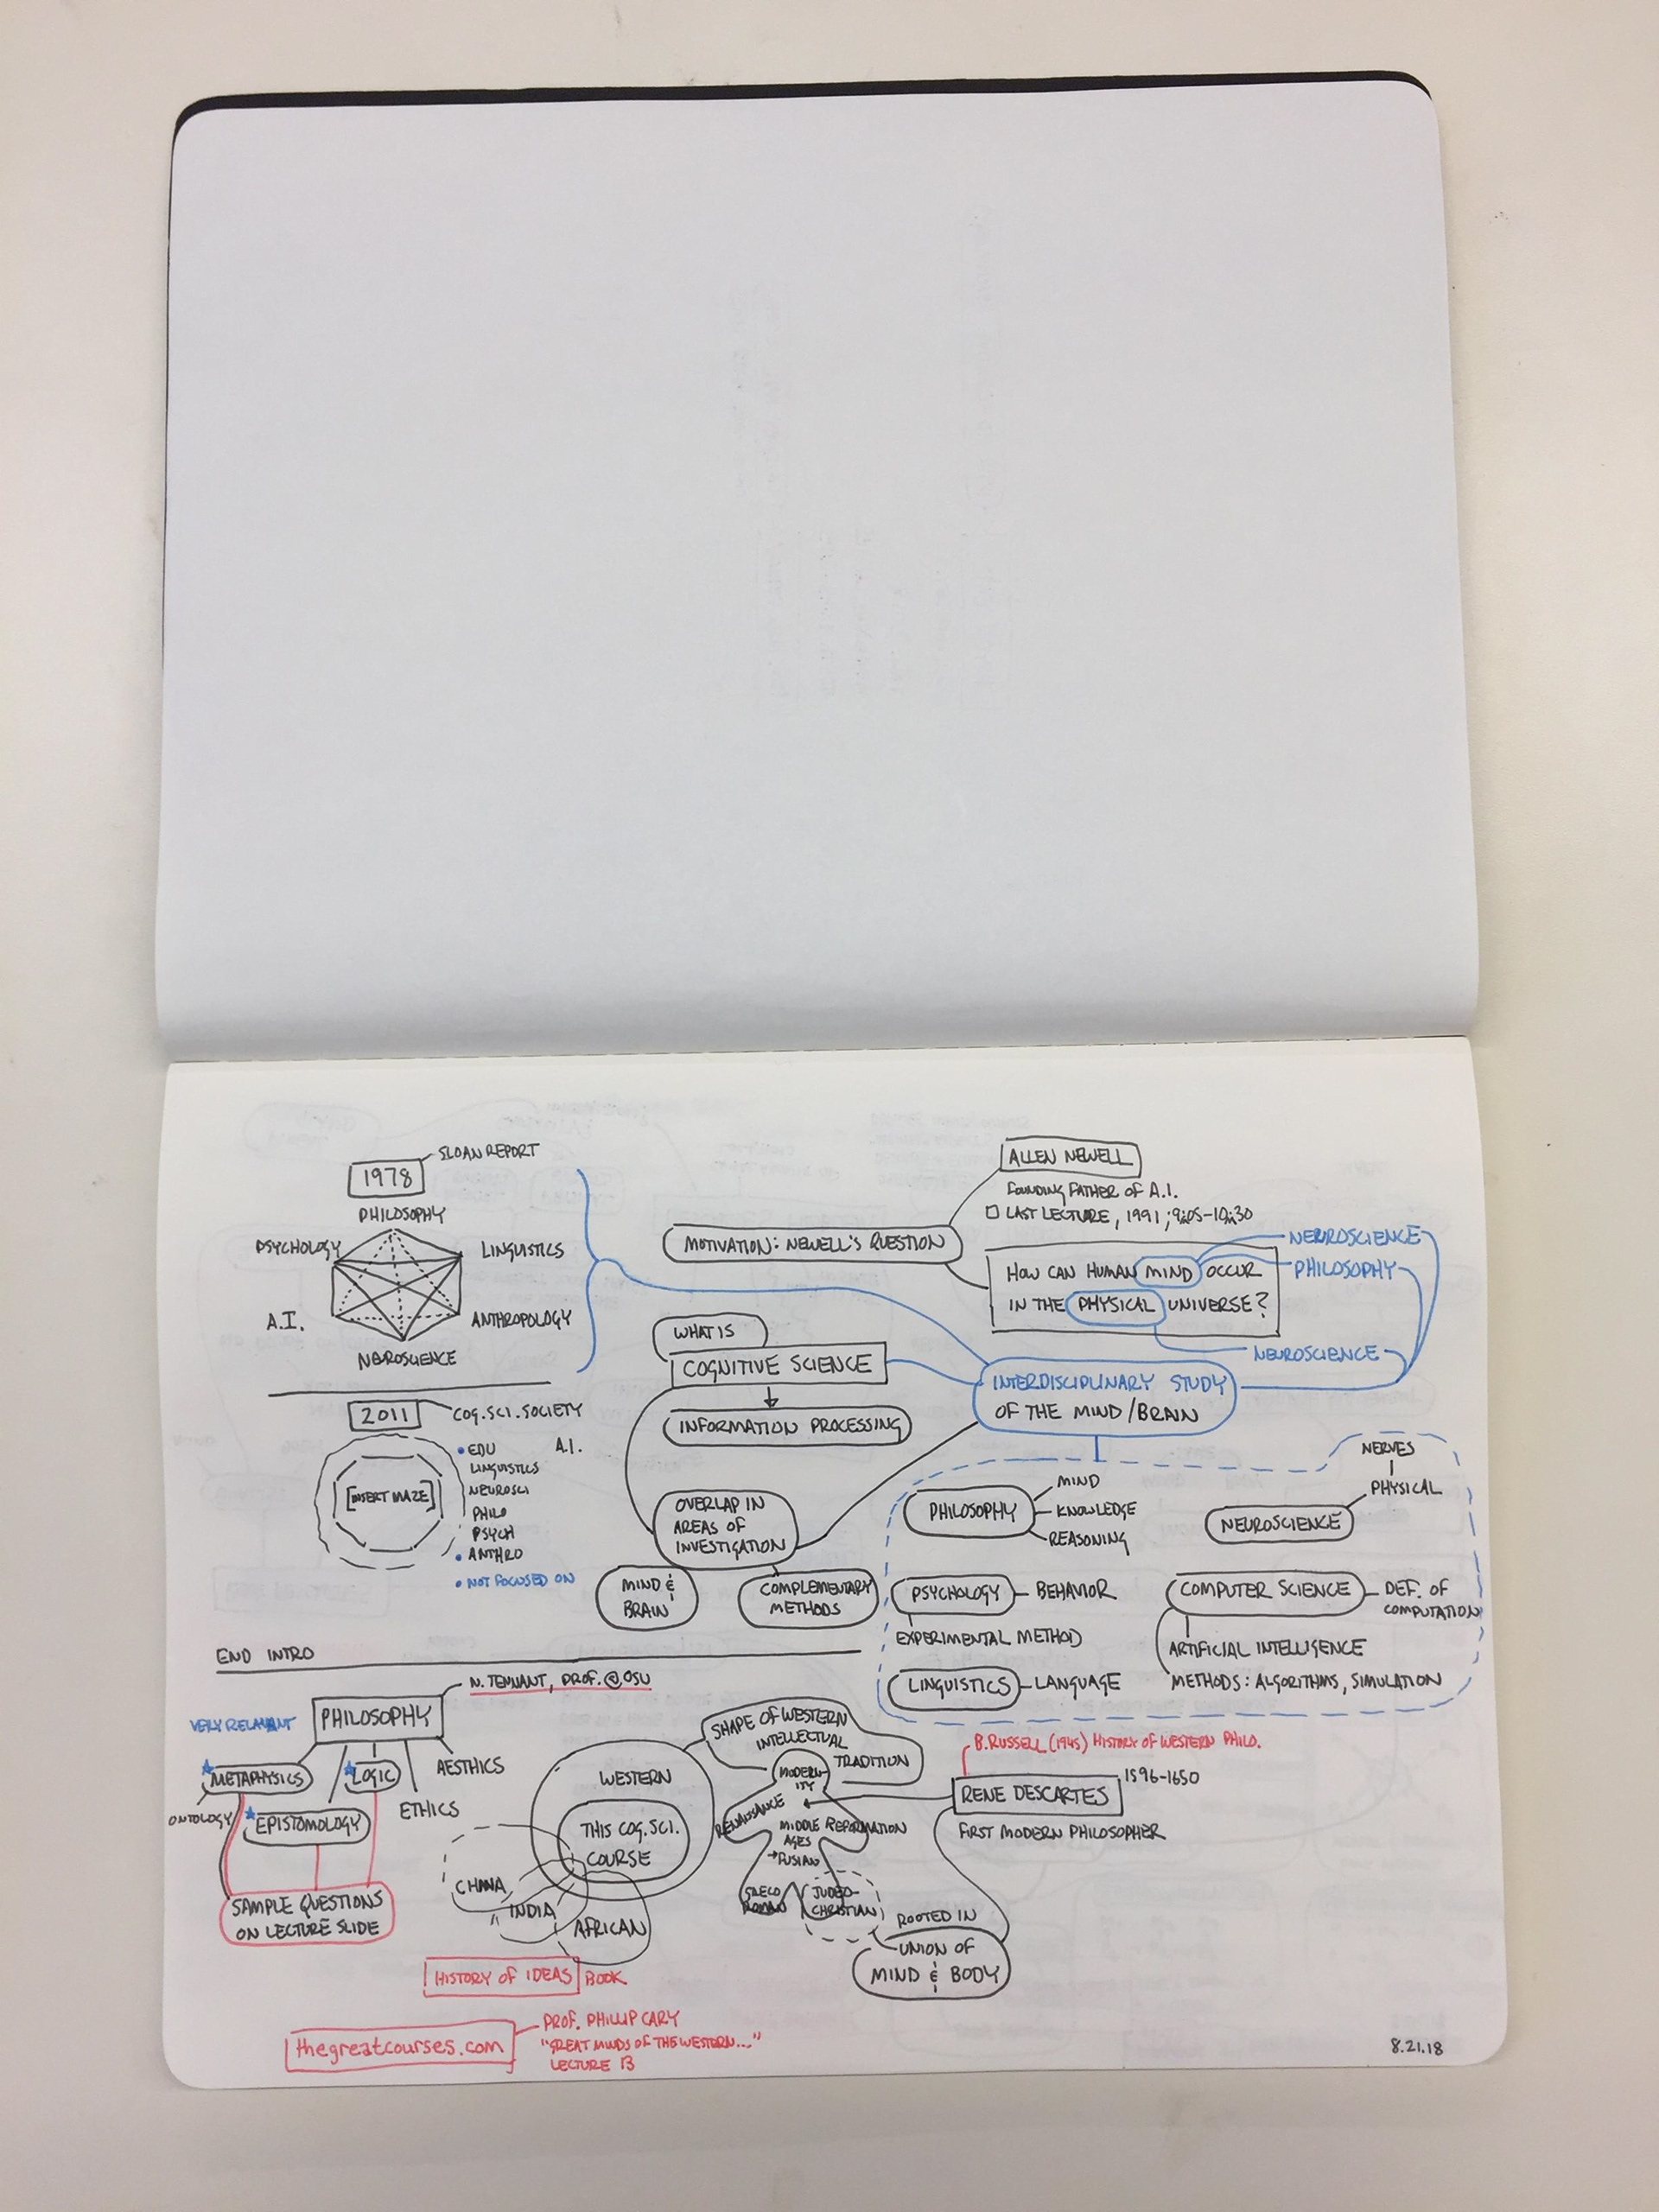 1978
SLOAN REPORT
PHILOSOPHY
PSYCHOLOGY
LINGUISTICS
A.I.
ANTHROPOLOGY
NEUROSCIENCE
2011
COG. SCI. SOCIETY
[INSERT MAZE]
• EDU
A.I.
LINGUISTICS
NEUROSCI
PHILO
PSYCH
• ANTHRO
• NOT FOCUSED ON
END INTRO
MOTIVATION: NEWELL'S QUESTION
ALLEN NEWELL
FOUNDING FATHER OF A.I.
LAST LECTURE, 1991;
HOW CAN HUMAN MIND OCCUR
IN THE PHYSICAL UNIVERSE?
NEUROSCIENCE
PHILOSOPHY
NEUROSCIENCE
WHAT IS
COGNITIVE SCIENCE
INFORMATION PROCESSING
INTERDISCIPLINARY STUDY
OF THE MIND/BRAIN
OVERLAP IN
AREAS OF
INVESTIGATION
MIND &
BRAIN
COMPLEMENTARY
METHODS
PHILOSOPHY
MIND
KNOWLEDGE
REASONING
NERVES
PHYSICAL
NEUROSCIENCE
PSYCHOLOGY
BEHAVIOR
EXPERIMENTAL METHOD
COMPUTER SCIENCE
DEF. OF
COMPUTATION
ARTIFICIAL INTELLIGENCE
METHODS: ALGORITHMS, SIMULATION
LINGUISTICS
LANGUAGE
N. TENNANT, PROF. @ OSU
PHILOSOPHY
VERY RELEVANT
METAPHYSICS
LOGIC
AESTHICS
ONTOLOGY
EPISTOMOLOGY
ETHICS
SAMPLE QUESTIONS
ON LECTURE SLIDE
WESTERN
THIS COG. SCI.
COURSE
CHINA
INDIA
AFRICAN
HISTORY OF IDEAS BOOK
thegreatcourses.com
PROF. PHILLIP CARY
"GREAT MINDS OF THE WESTERN..."
LECTURE 13
SHAPE OF WESTERN
INTELLECTUAL
TRADITION
MODERN-
ITY
RENAISSANCE
MIDDLE
AGES
REFORMATION
→FUSION
GRECO
ROMAN
JUDEO-
CHRISTIAN
B. RUSSELL (1945) HISTORY OF WESTERN PHILO.
RENE DESCARTES
1596-1650
FIRST MODERN PHILOSOPHER
ROOTED IN
UNION OF
MIND & BODY
8.21.18